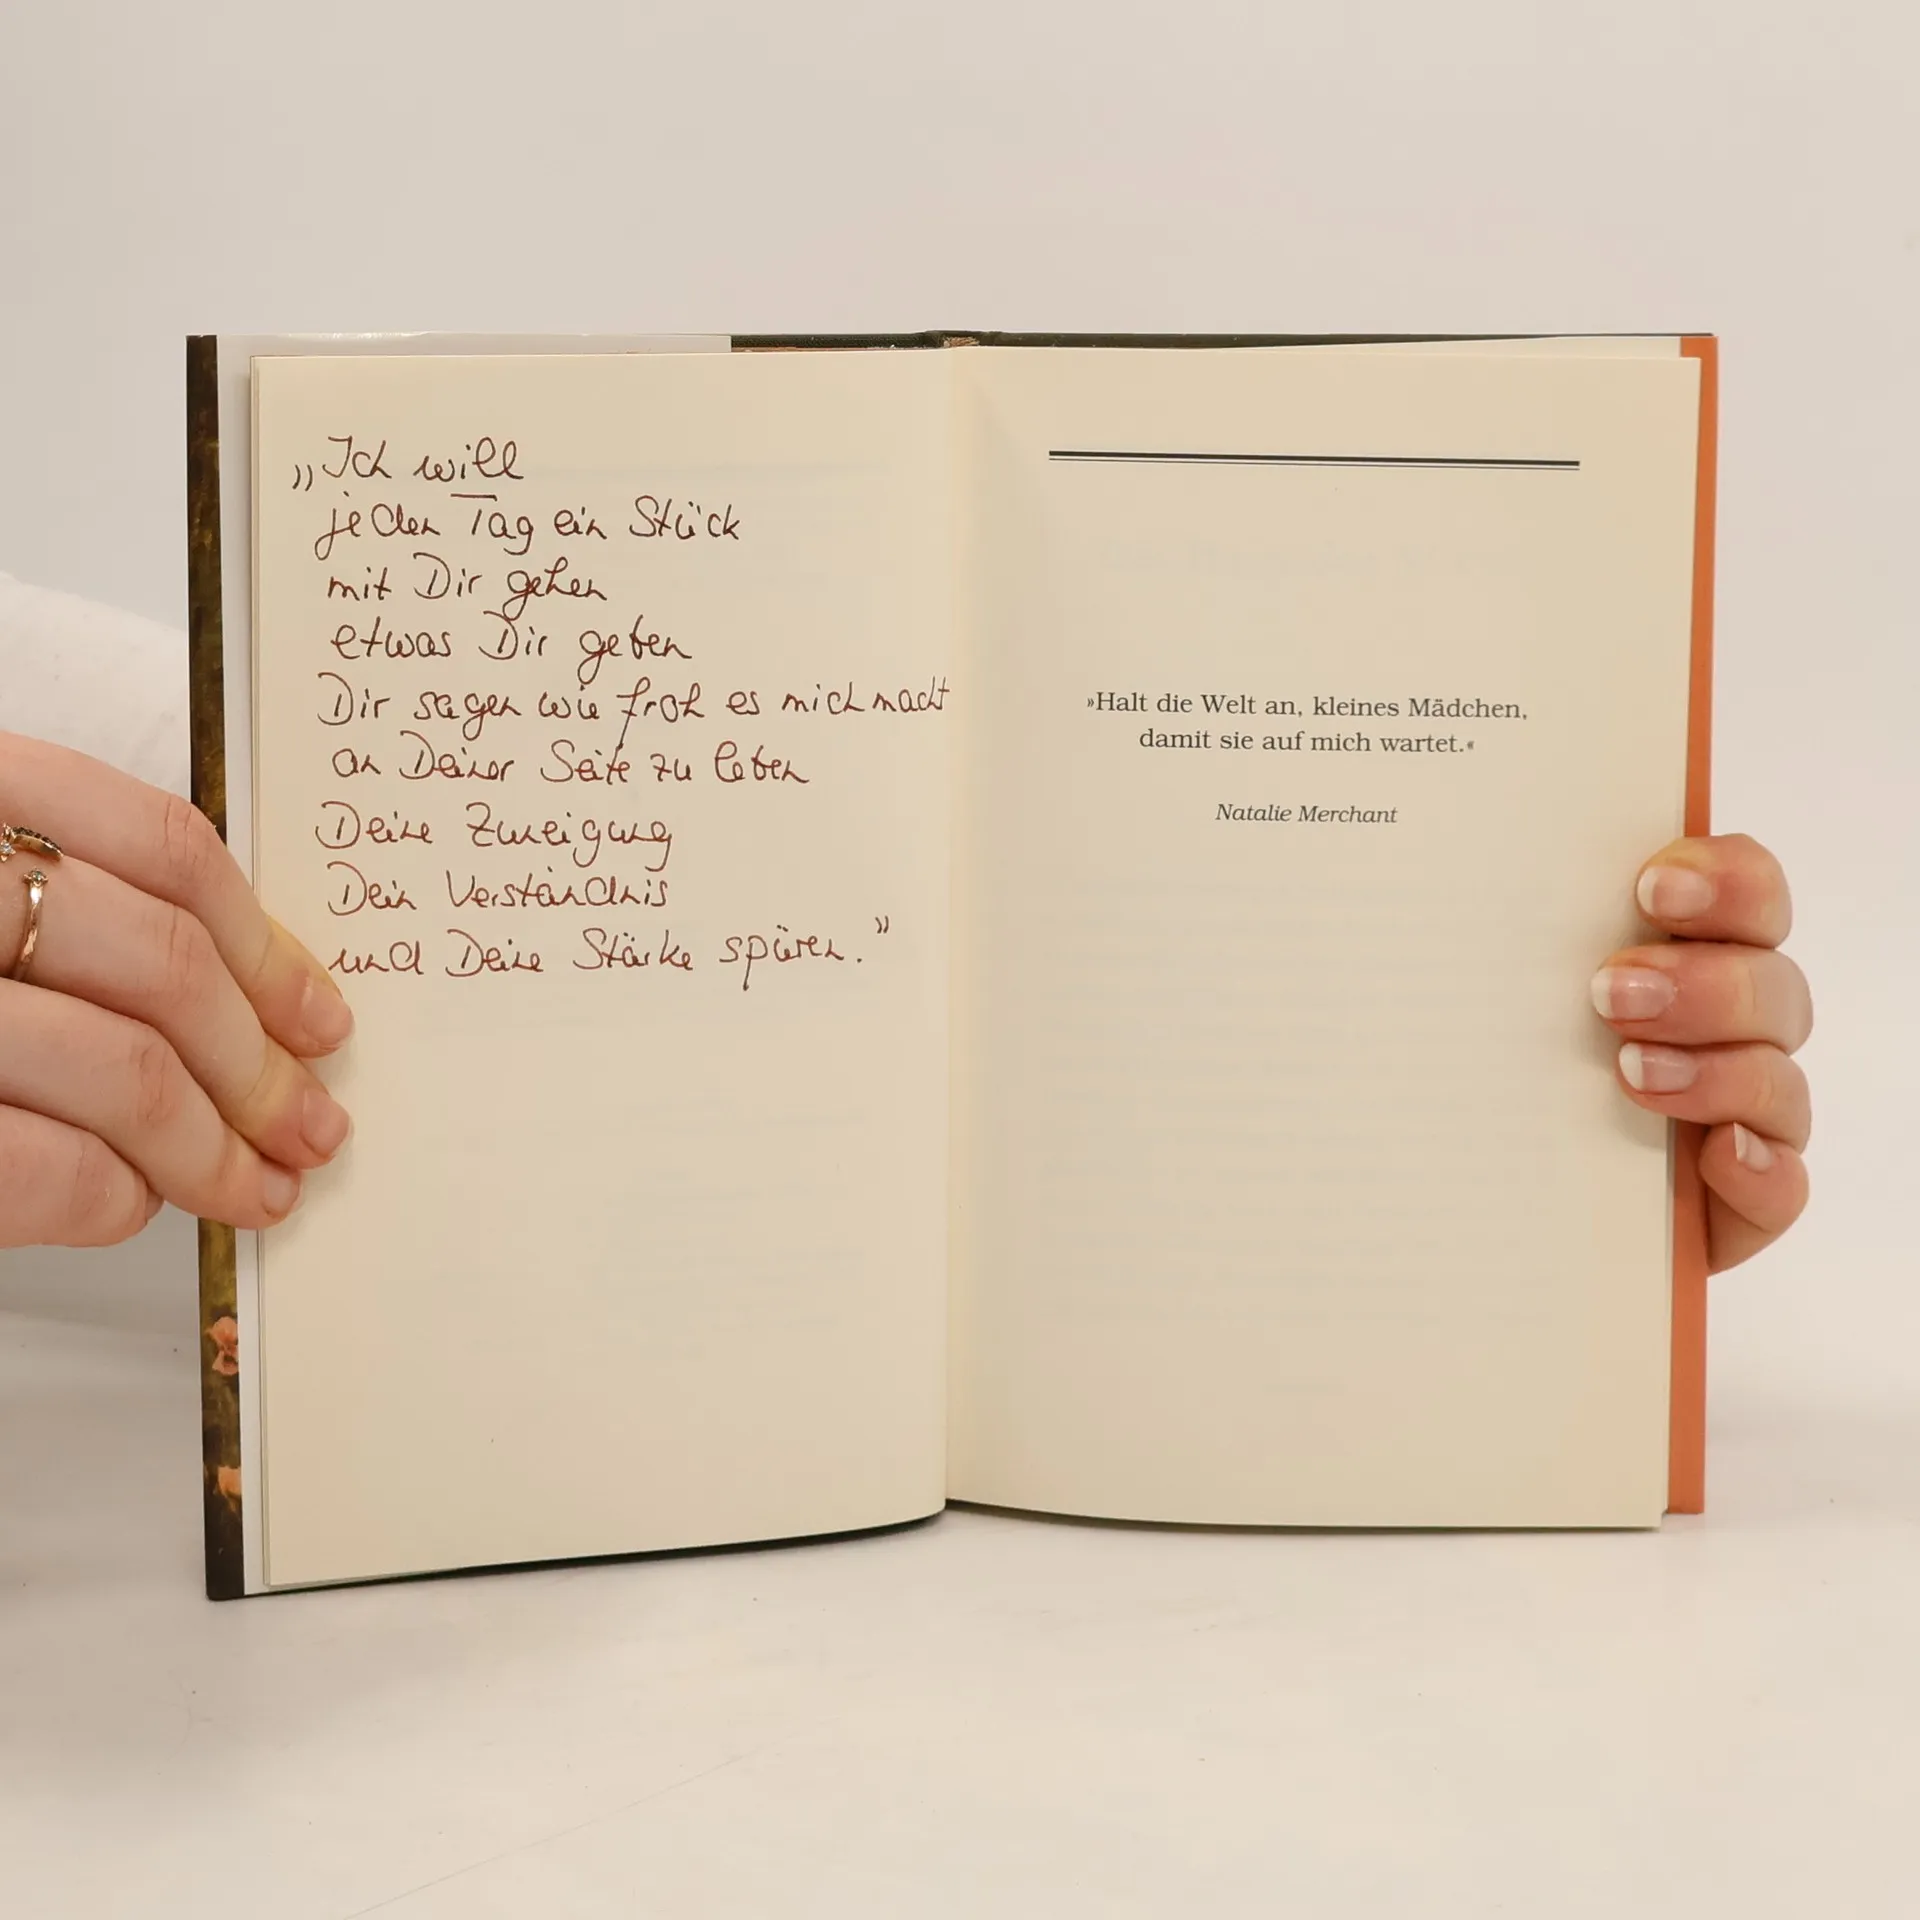 „Ich will
jeden Tag ein Stück
mit Dir gehen
etwas Dir geben
Dir sagen wie froh es mich macht
an Deiner Seite zu leben
Deine Zuneigung
Dein Verständnis
und Deine Stärke spüren.”
»Halt die Welt an, kleines Mädchen,
damit sie auf mich wartet.«
Natalie Merchant